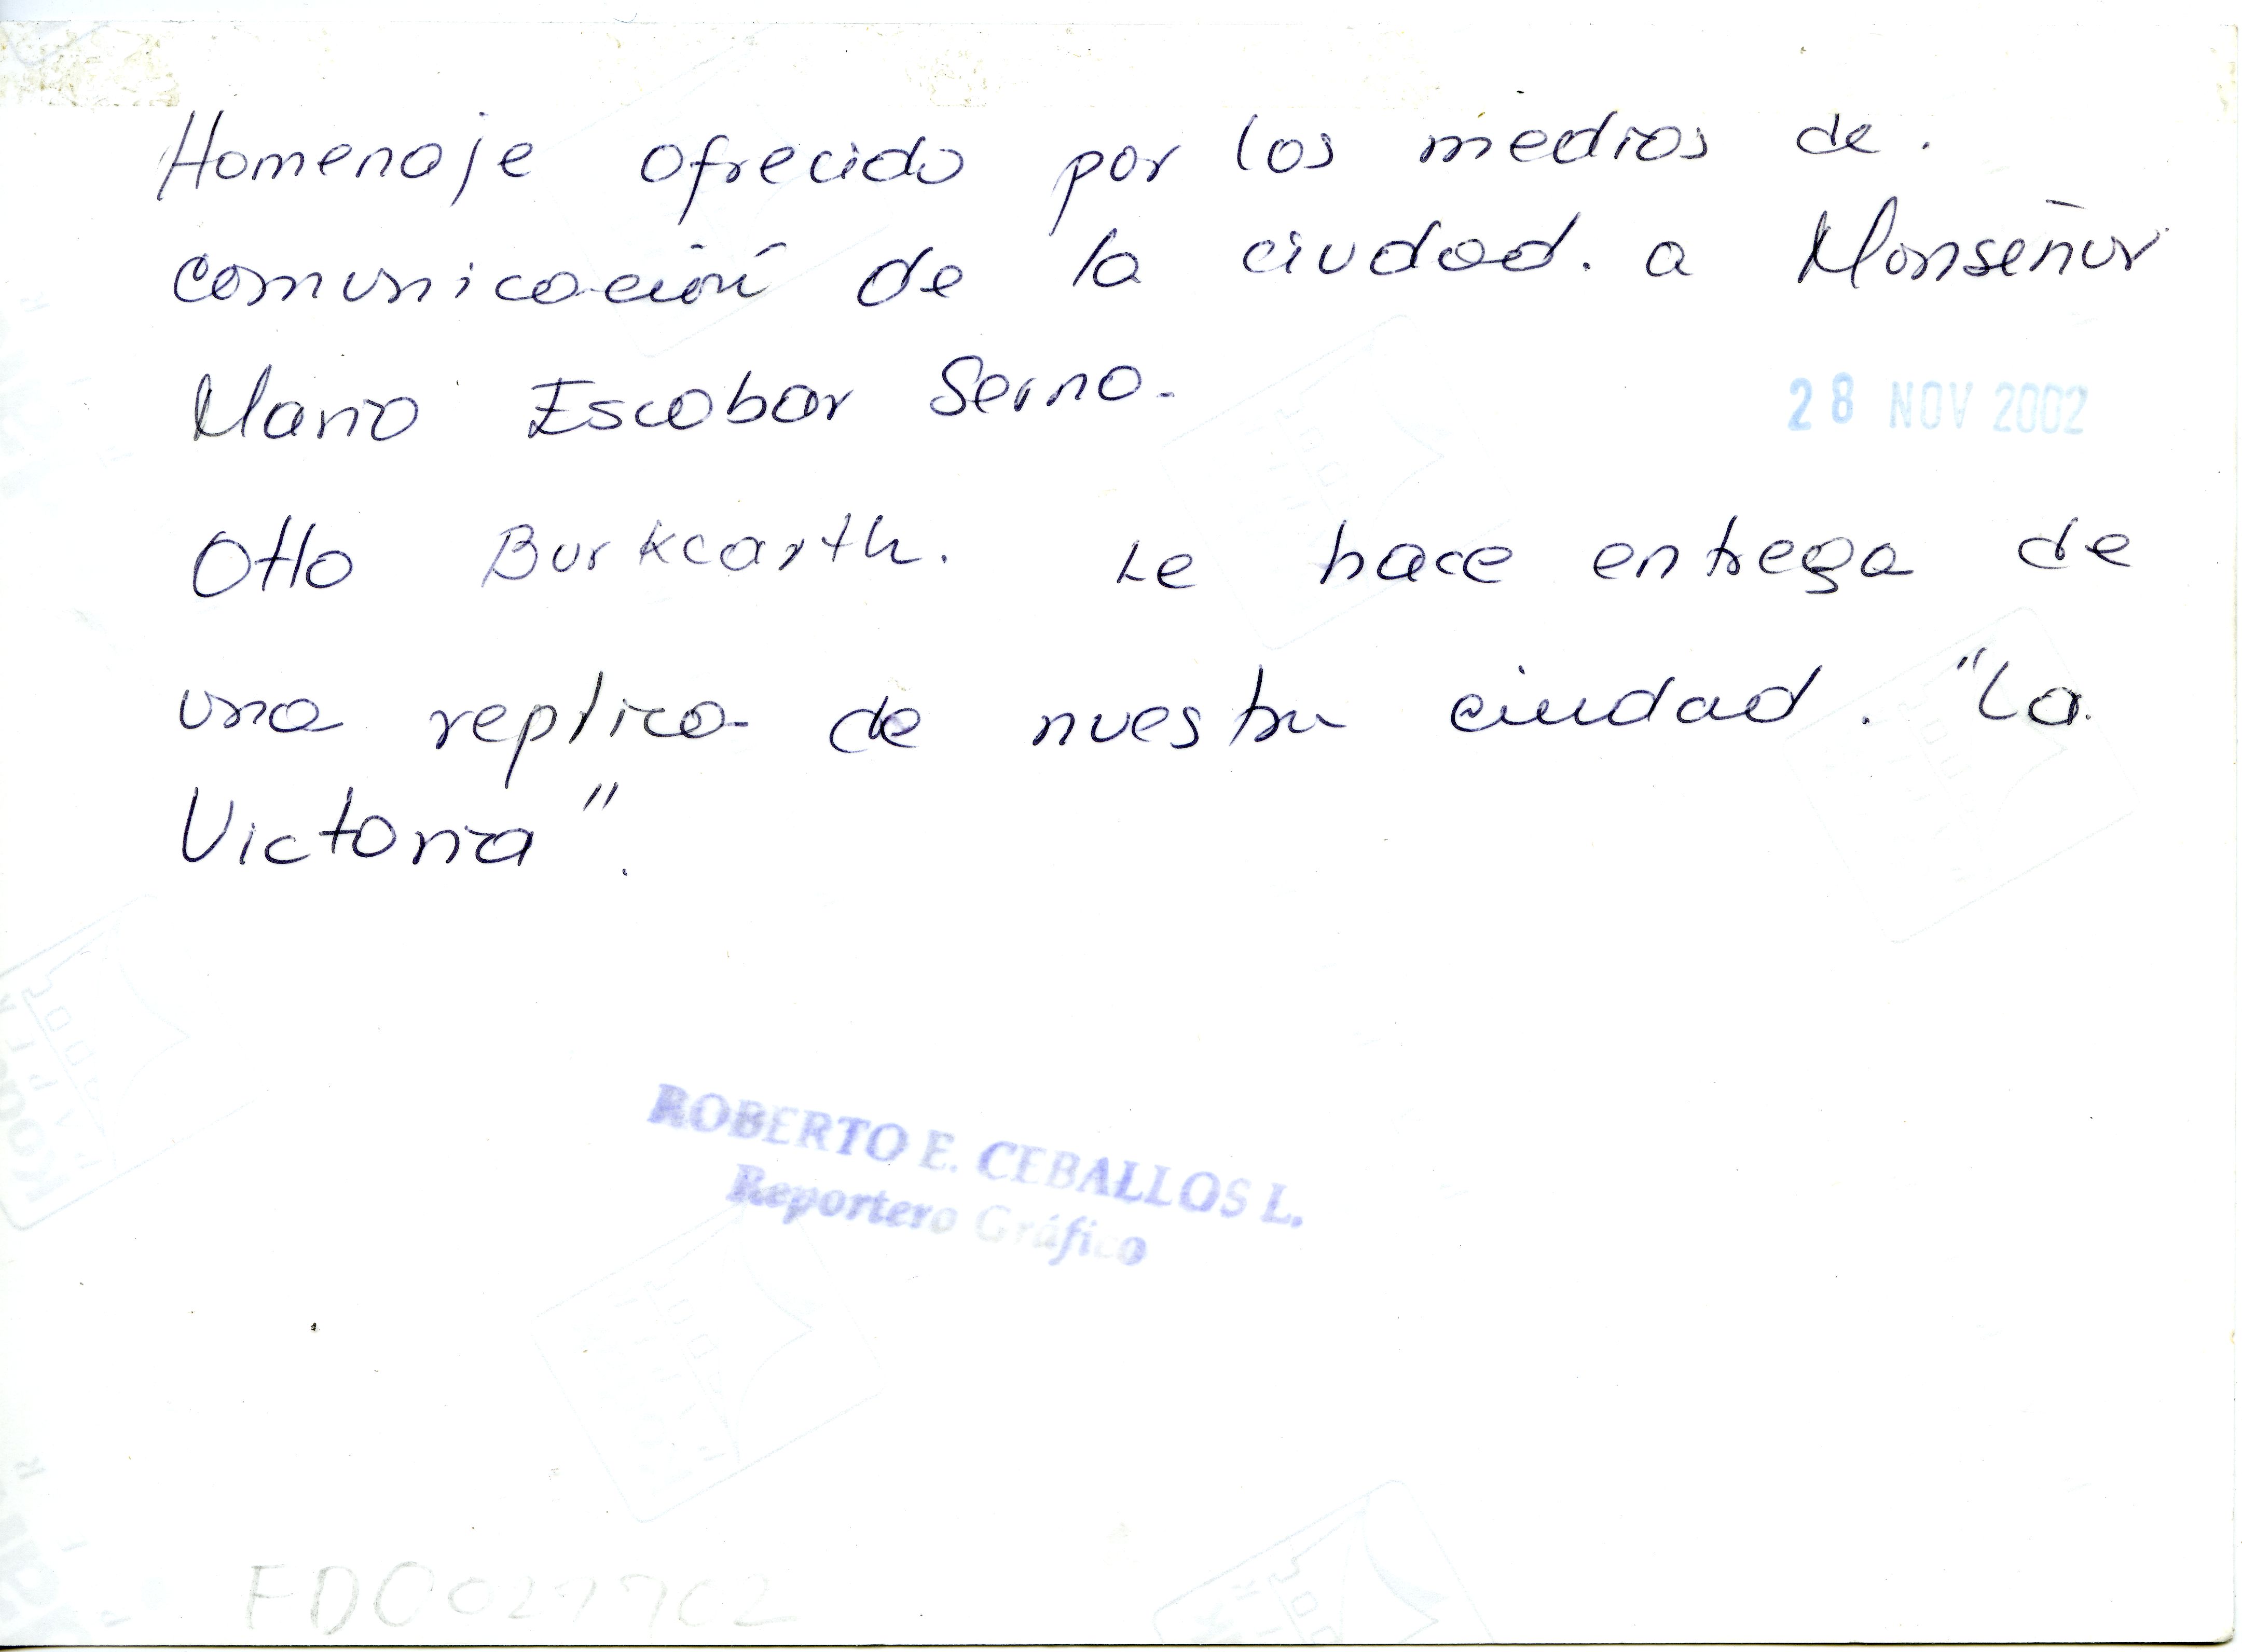 Homenaje ofrecido por los medios de.
comunicación de la ciudad. a Monseñor
Mario Escobar Serna.
28 NOV 2002
Otto Burkcarth. Le hace entrega de
una replica de nuestra ciudad. "La
Victoria".
ROBERTO E. CEBALLOS L.
Reportero Gráfico